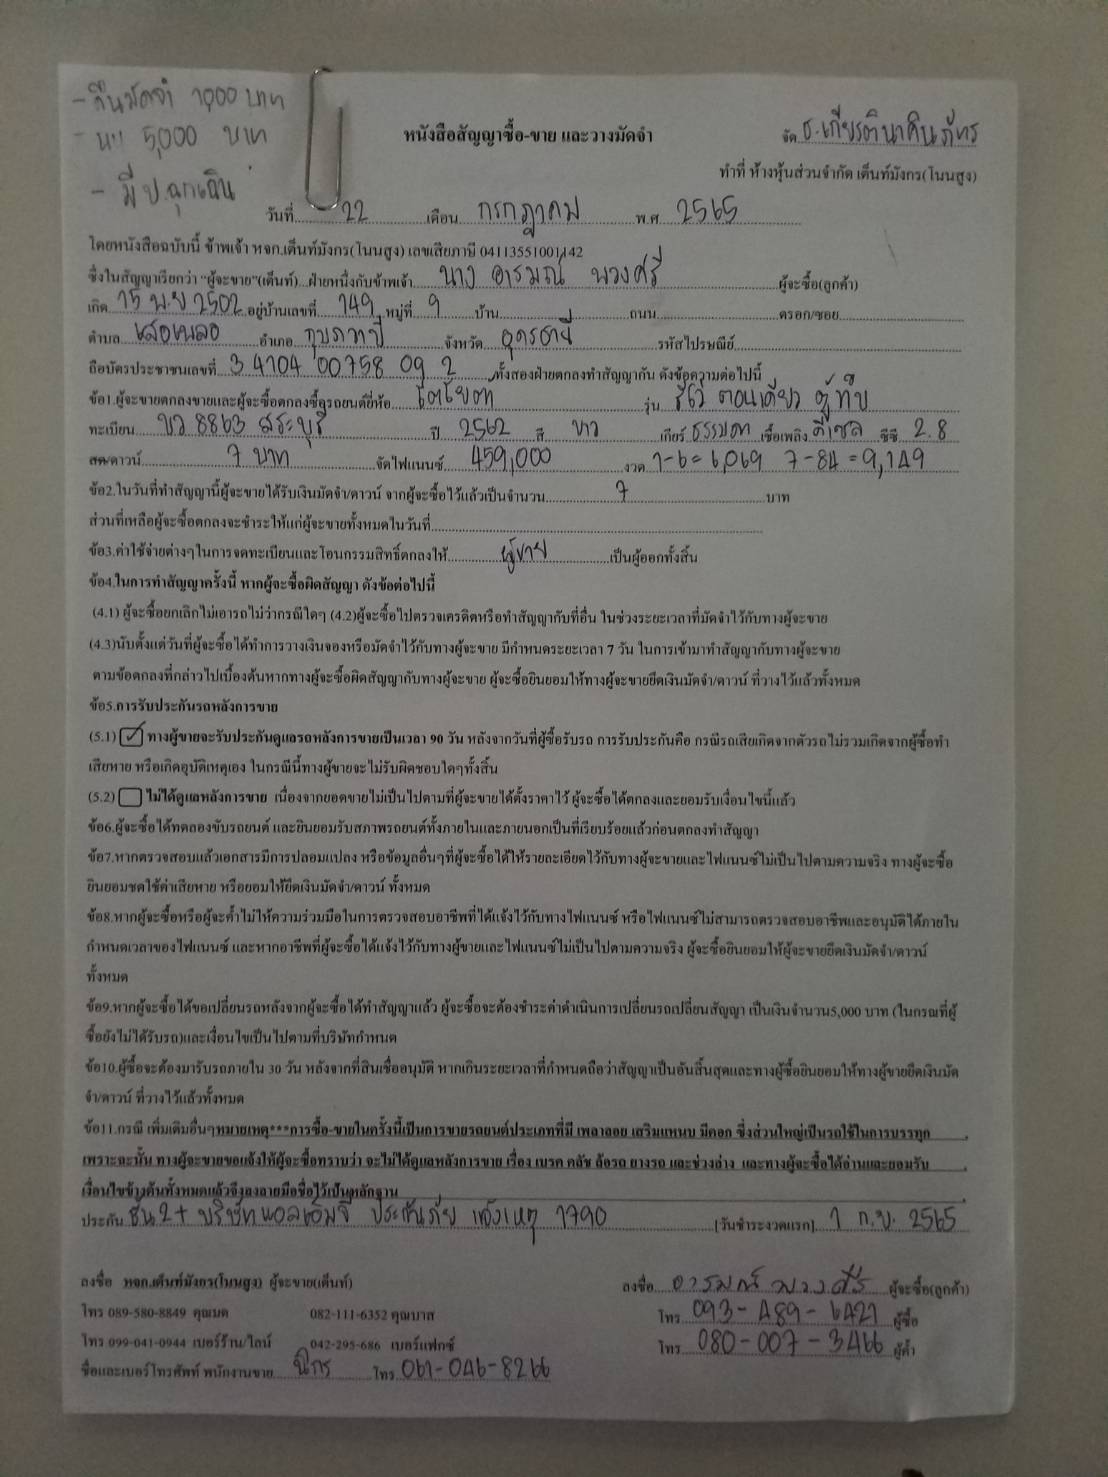 - คืนมัดจำ 1,000 บาท
- หบ 5,000 บาท
- มี ป.ฉุกเฉิน
หนังสือสัญญาซื้อ-ขาย และวางมัดจำ
จัด ธ.เกียรตินาคินภัทร
ทำที่ ห้างหุ้นส่วนจำกัด เต็นท์มังกร(โนนสูง)
วันที่ 22 เดือน กรกฎาคม พ.ศ 2565
โดยหนังสือฉบับนี้ ข้าพเจ้า หจก.เต็นท์มังกร(โนนสูง) เลขเสียภาษี 04113551001142
ซึ่งในสัญญาเรียกว่า "ผู้จะขาย"(เต็นท์)...ฝ่ายหนึ่งกับข้าพเจ้า นาง อารมณ์ พวงศรี ผู้จะซื้อ(ลูกค้า)
เกิด 15 พ.ย 2502 อยู่บ้านเลขที่ 149 หมู่ที่ 9 บ้าน ถนน ตรอก/ซอย
ตำบล เสอเพลอ อำเภอ กุมภวาปี จังหวัด อุดรธานี รหัสไปรษณีย์
ถือบัตรประชาชนเลขที่ 3 4104 00758 09 2 ทั้งสองฝ่ายตกลงทำสัญญากัน ดังข้อความต่อไปนี้
ข้อ1.ผู้จะขายตกลงขายและผู้จะซื้อตกลงซื้อรถยนต์ยี่ห้อ โตโยต้า รุ่น รีโว้ ตอนเดียว ตู้ทึบ
ทะเบียน บว 8863 สระบุรี ปี 2562 สี ขาว เกียร์ ธรรมดา เชื้อเพลิง ดีเซล ซีซี 2.8
สด/ดาวน์ 7 บาท จัดไฟแนนซ์ 459,000 งวด 1-6 = 6,069 7-84 = 9,149
ข้อ2.ในวันที่ทำสัญญานี้ผู้จะขายได้รับเงินมัดจำ/ดาวน์ จากผู้จะซื้อไว้แล้วเป็นจำนวน 7 บาท
ส่วนที่เหลือผู้จะซื้อตกลงจะชำระให้แก่ผู้จะขายทั้งหมดในวันที่
ข้อ3.ค่าใช้จ่ายต่างๆในการจดทะเบียนและโอนกรรมสิทธิ์ตกลงให้ ผู้ขาย เป็นผู้ออกทั้งสิ้น
ข้อ4.ในการทำสัญญาครั้งนี้ หากผู้จะซื้อผิดสัญญา ดังข้อต่อไปนี้
(4.1) ผู้จะซื้อยกเลิกไม่เอารถไม่ว่ากรณีใดๆ (4.2)ผู้จะซื้อไปตรวจเครดิตหรือทำสัญญากับที่อื่น ในช่วงระยะเวลาที่มัดจำไว้กับทางผู้จะขาย
(4.3)นับตั้งแต่วันที่ผู้จะซื้อได้ทำการวางเงินจองหรือมัดจำไว้กับทางผู้จะขาย มีกำหนดระยะเวลา 7 วัน ในการเข้ามาทำสัญญากับทางผู้จะขาย
ตามข้อตกลงที่กล่าวไปเบื้องต้นหากทางผู้จะซื้อผิดสัญญากับทางผู้จะขาย ผู้จะซื้อยินยอมให้ทางผู้จะขายยึดเงินมัดจำ/ดาวน์ ที่วางไว้แล้วทั้งหมด
ข้อ5.การรับประกันรถหลังการขาย
(5.1) ✓ ทางผู้ขายจะรับประกันดูแลรถหลังการขายเป็นเวลา 90 วัน หลังจากวันที่ผู้ซื้อรับรถ การรับประกันคือ กรณีรถเสียเกิดจากตัวรถไม่รวมเกิดจากผู้ซื้อทำ
เสียหาย หรือเกิดอุบัติเหตุเอง ในกรณีนี้ทางผู้ขายจะไม่รับผิดชอบใดๆทั้งสิ้น
(5.2) ไม่ได้ดูแลหลังการขาย เนื่องจากยอดขายไม่เป็นไปตามที่ผู้จะขายได้ตั้งราคาไว้ ผู้จะซื้อได้ตกลงและยอมรับเงื่อนไขนี้แล้ว
ข้อ6.ผู้จะซื้อได้ทดลองขับรถยนต์ และยินยอมรับสภาพรถยนต์ทั้งภายในและภายนอกเป็นที่เรียบร้อยแล้วก่อนตกลงทำสัญญา
ข้อ7.หากตรวจสอบแล้วเอกสารมีการปลอมแปลง หรือข้อมูลอื่นๆที่ผู้จะซื้อได้ให้รายละเอียดไว้กับทางผู้จะขายและไฟแนนซ์ไม่เป็นไปตามความจริง ทางผู้จะซื้อ
ยินยอมชดใช้ค่าเสียหาย หรือยอมให้ยึดเงินมัดจำ/ดาวน์ ทั้งหมด
ข้อ8.หากผู้จะซื้อหรือผู้จะค้ำไม่ให้ความร่วมมือในการตรวจสอบอาชีพที่ได้แจ้งไว้กับทางไฟแนนซ์ หรือไฟแนนซ์ไม่สามารถตรวจสอบอาชีพและอนุมัติได้ภายใน
กำหนดเวลาของไฟแนนซ์ และหากอาชีพที่ผู้จะซื้อได้แจ้งไว้กับทางผู้ขายและไฟแนนซ์ไม่เป็นไปตามความจริง ผู้จะซื้อยินยอมให้ผู้จะขายยึดเงินมัดจำ/ดาวน์
ทั้งหมด
ข้อ9.หากผู้จะซื้อได้ขอเปลี่ยนรถหลังจากผู้จะซื้อได้ทำสัญญาแล้ว ผู้จะซื้อจะต้องชำระค่าดำเนินการเปลี่ยนรถเปลี่ยนสัญญา เป็นเงินจำนวน5,000 บาท (ในกรณที่ผู้
ซื้อยังไม่ได้รับรถ)และเงื่อนไขเป็นไปตามที่บริษัทกำหนด
ข้อ10.ผู้ซื้อจะต้องมารับรถภายใน 30 วัน หลังจากที่สินเชื่ออนุมัติ หากเกินระยะเวลาที่กำหนดถือว่าสัญญาเป็นอันสิ้นสุดและทางผู้ซื้อยินยอมให้ทางผู้ขายยึดเงินมัด
จำ/ดาวน์ ที่วางไว้แล้วทั้งหมด
ข้อ11.กรณี เพิ่มเติมอื่นๆหมายเหตุ***การซื้อ-ขายในครั้งนี้เป็นการขายรถยนต์ประเภทที่มี เพลาลอย เสริมแหนบ มีคอก ซึ่งส่วนใหญ่เป็นรถใช้ในการบรรทุก
เพราะฉะนั้น ทางผู้จะขายขอแจ้งให้ผู้จะซื้อทราบว่า จะไม่ได้ดูแลหลังการขาย เรื่อง เบรค คลัช ล้อรถ ยางรถ และช่วงล่าง และทางผู้จะซื้อได้อ่านและยอมรับ
เงื่อนไขข้างต้นทั้งหมดแล้วจึงลงลายมือชื่อไว้เป็นหลักฐาน
ประกัน ชั้น 2+ บริษัท แอลเอ็มจี ประกันภัย แจ้งเหตุ 1790 [วันชำระงวดแรก] 1 ก.ย. 2565
ลงชื่อ หจก.เต็นท์มังกร(โนนสูง) ผู้จะขาย(เต็นท์) ลงชื่อ อารมณ์ พวงศรี ผู้จะซื้อ(ลูกค้า)
โทร 089-580-8849 คุณมด 082-111-6352 คุณบาส โทร 093-489-6421 ผู้ซื้อ
โทร 099-041-0944 เบอร์ร้าน/ไลน์ 042-295-686 เบอร์แฟกซ์ โทร 080-007-3466 ผู้ค้ำ
ชื่อและเบอร์โทรศัพท์ พนักงานขาย นิกร โทร 061-046-8266